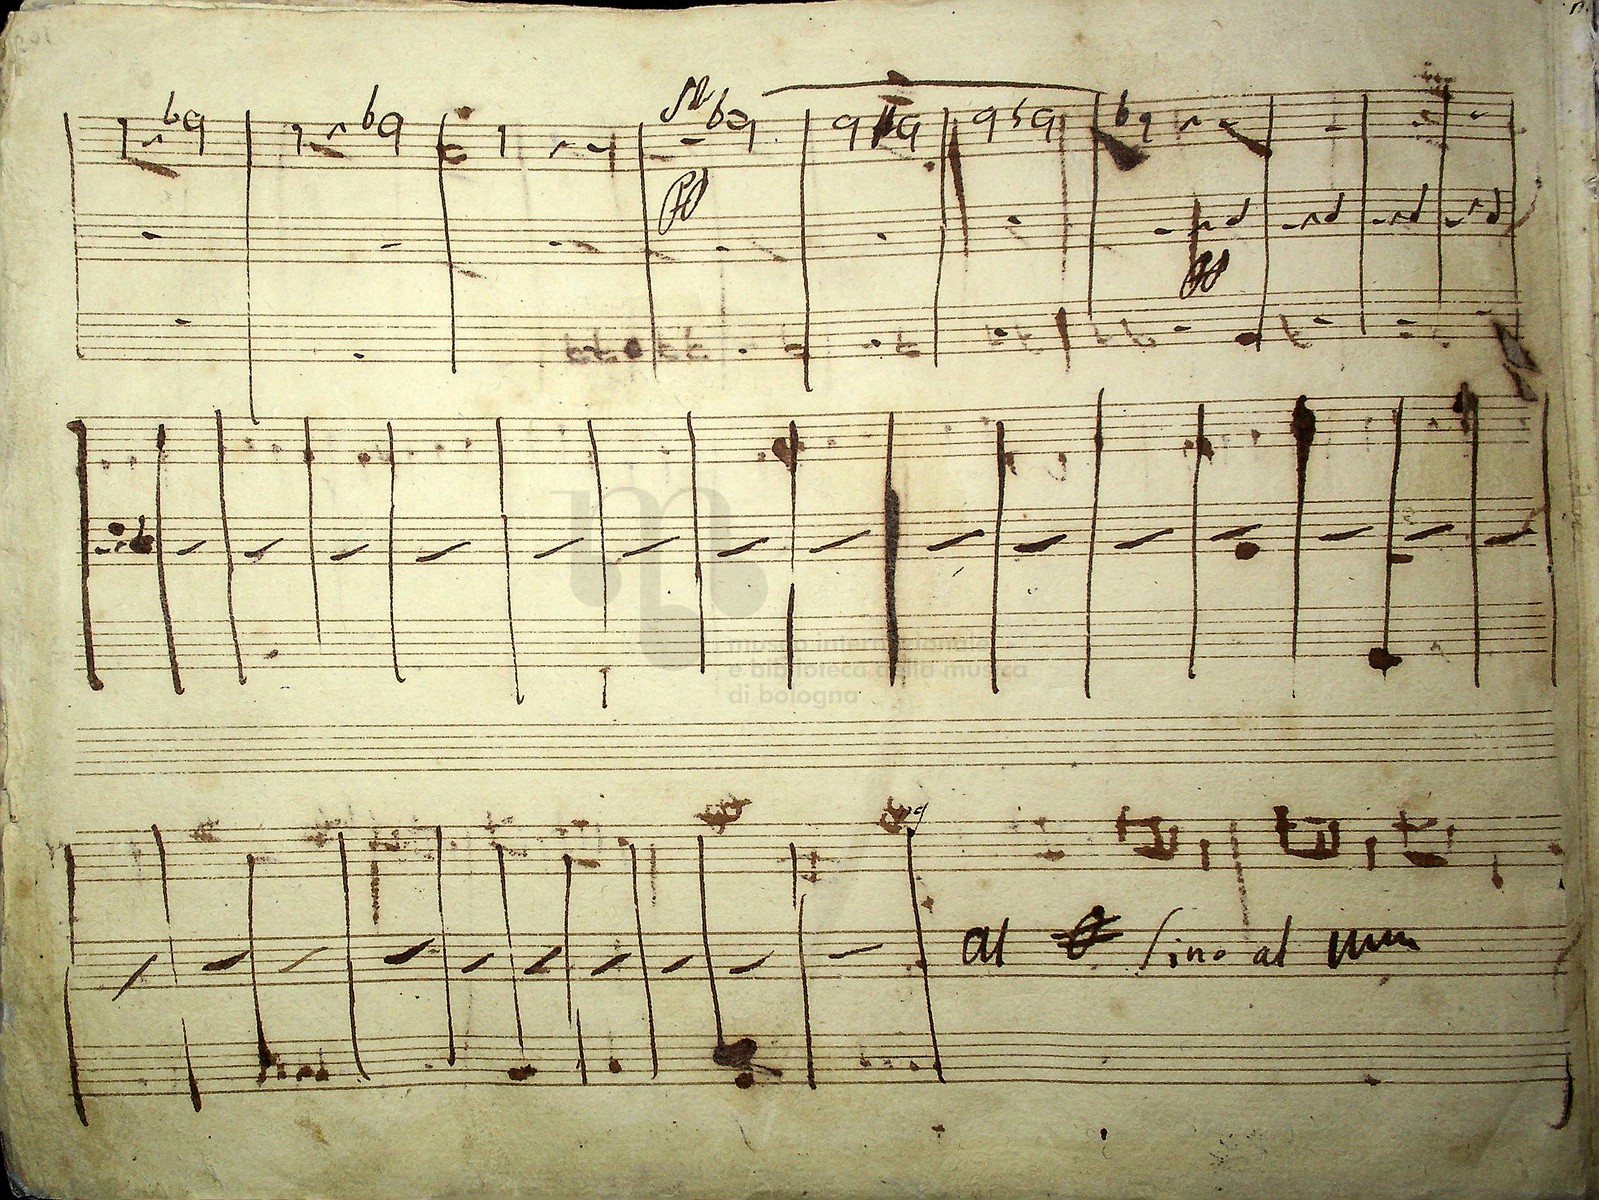 pp
pp
museo internazionale
e biblioteca della musica
di bologna
al sino al